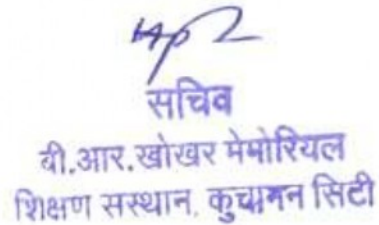 सचिव
बी.आर.खोखर मेमोरियल
शिक्षण सस्थान, कुचामन सिटी